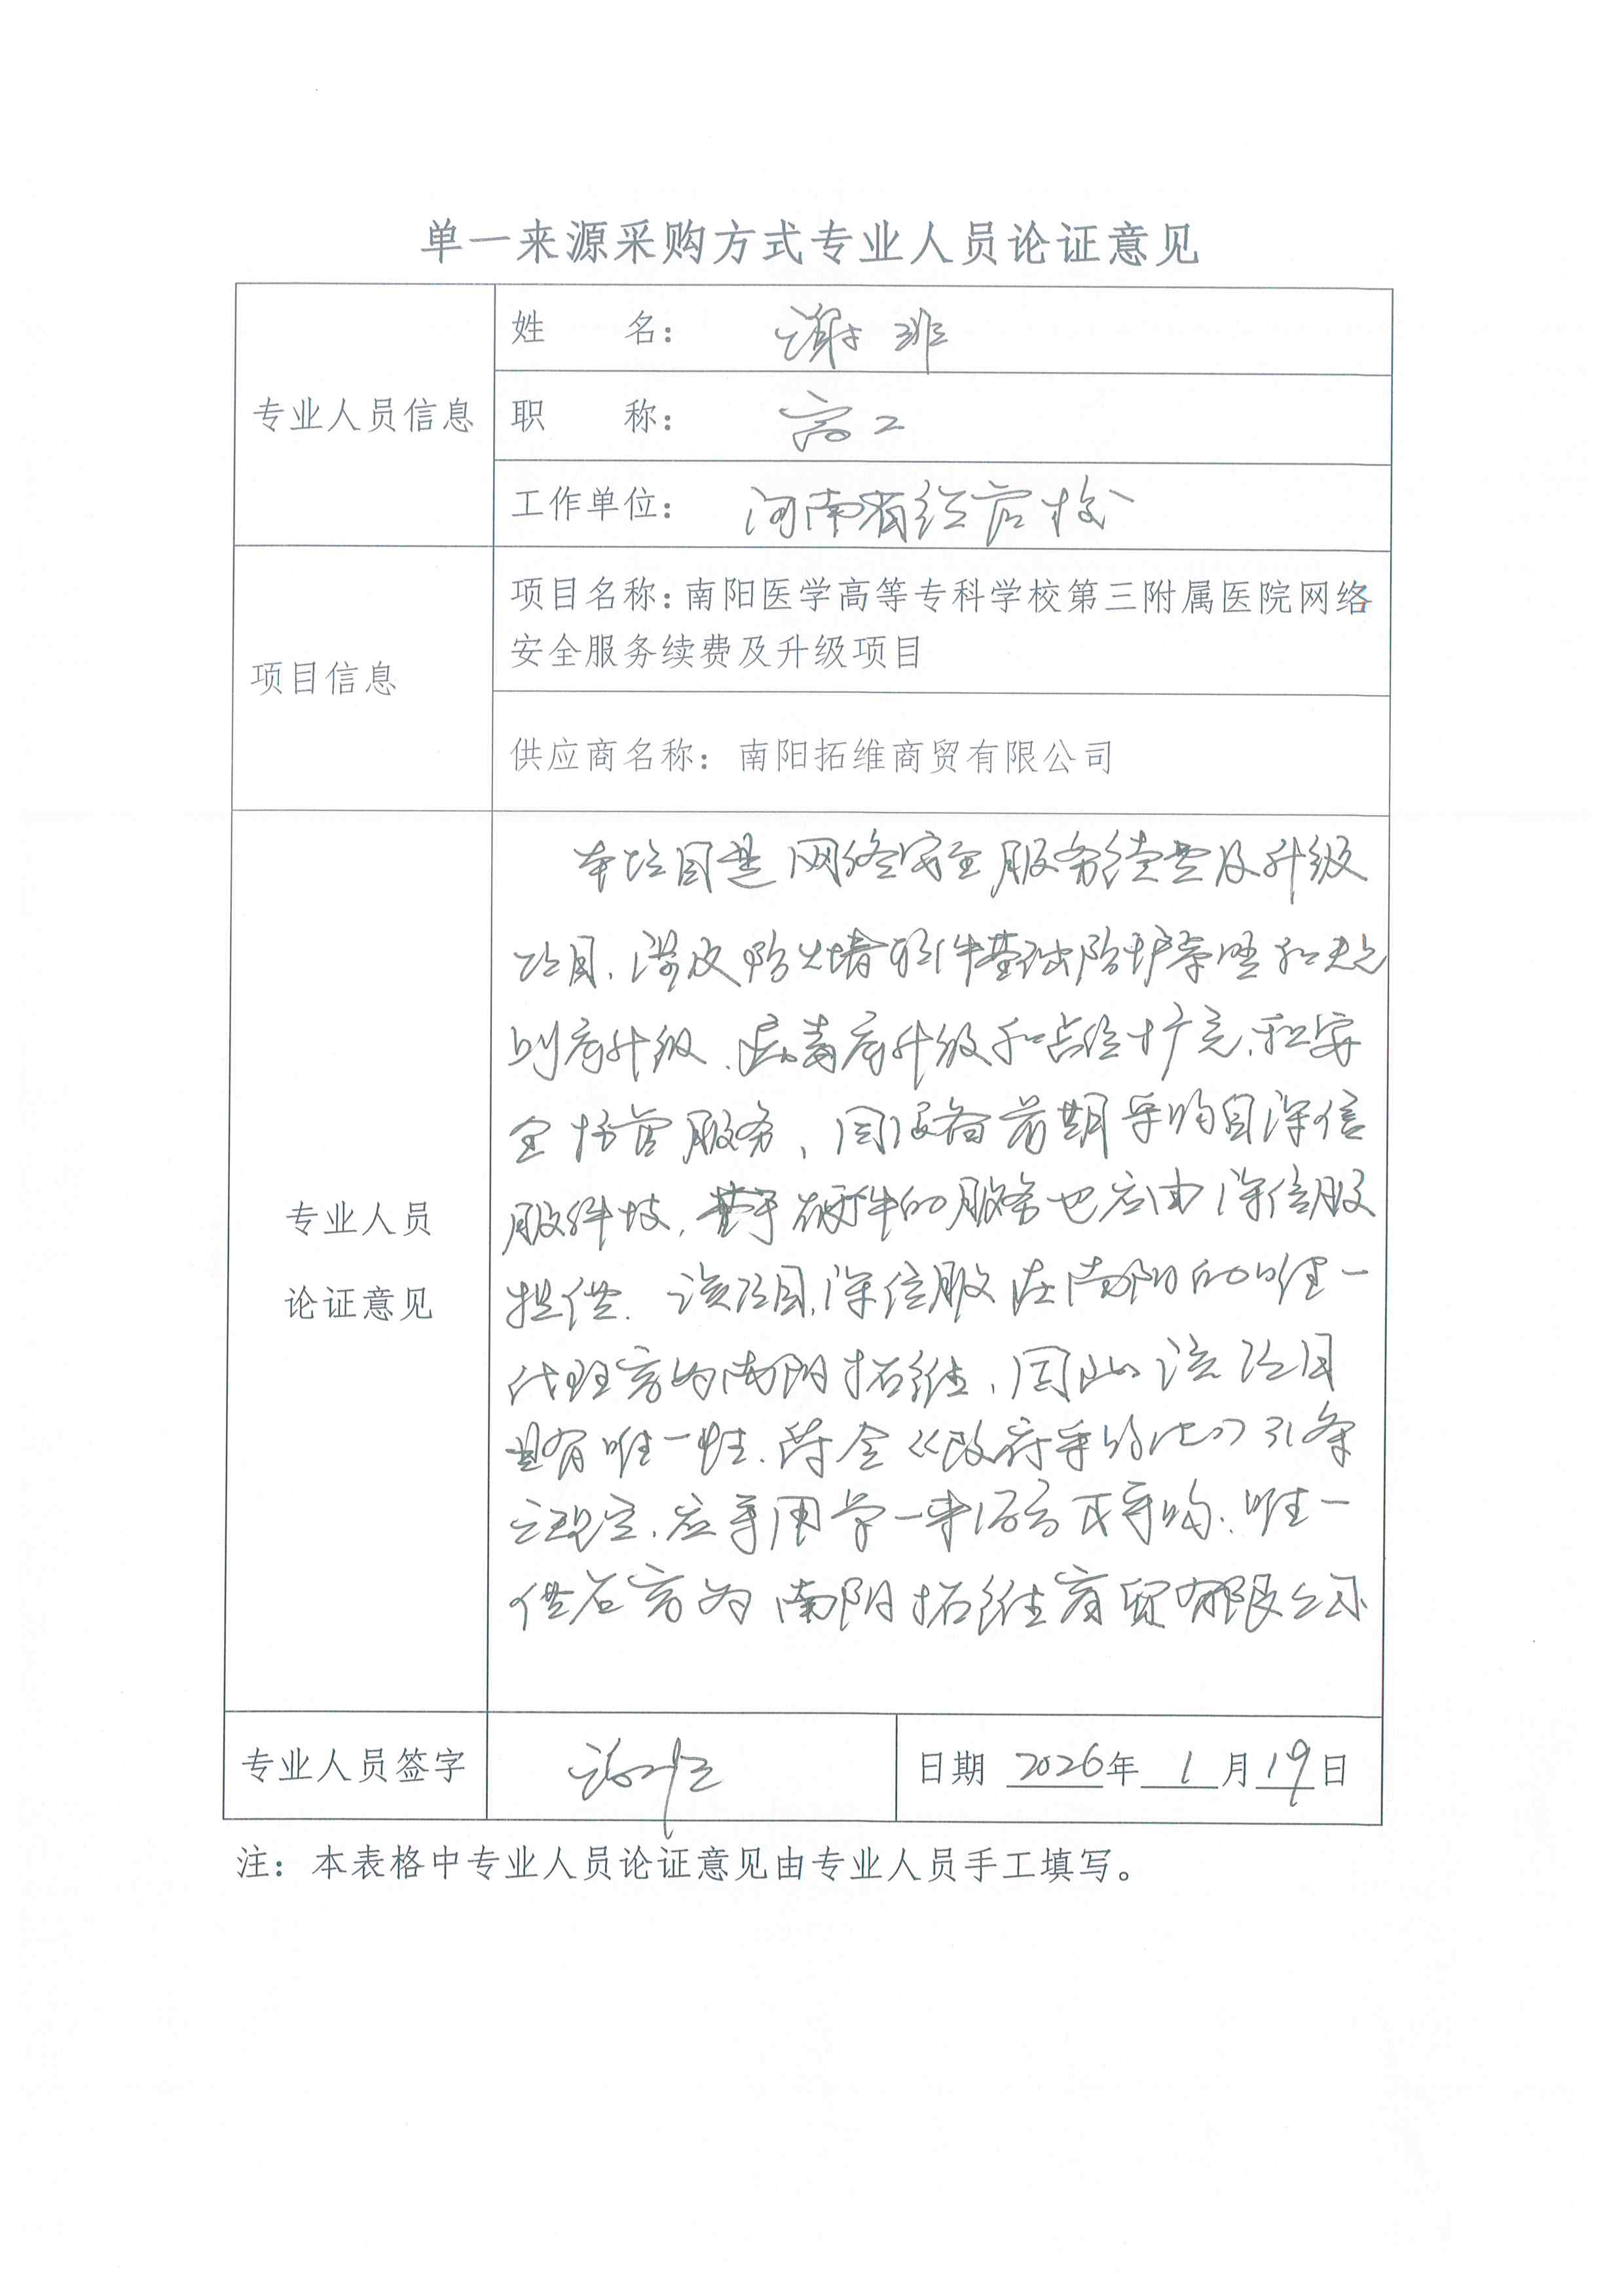 单一来源采购方式专业人员论证意见
专业人员信息
姓 名： 谢
职 称： 高工
工作单位： 河南省经管校
项目信息
项目名称：南阳医学高等专科学校第三附属医院网络
安全服务续费及升级项目
供应商名称：南阳拓维商贸有限公司
专业人员
论证意见
本项目是网络安全服务续费及升级
项目，涉及防火墙软件基础防护 和规
则库升级、病毒库升级和点位扩充，和安
全托管服务，因设备前期采购自深信
服科技，基于硬件的服务也应由深信服
提供。该项目，深信服在南阳的唯一
代理商为南阳拓维，因此该项目
具有唯一性。符合《政府采购法》31条
之规定，应采用单一来源方式采购。唯一
供应商为南阳拓维商贸有限公司
专业人员签字 谢
日期 2026年 1 月 19 日
注：本表格中专业人员论证意见由专业人员手工填写。